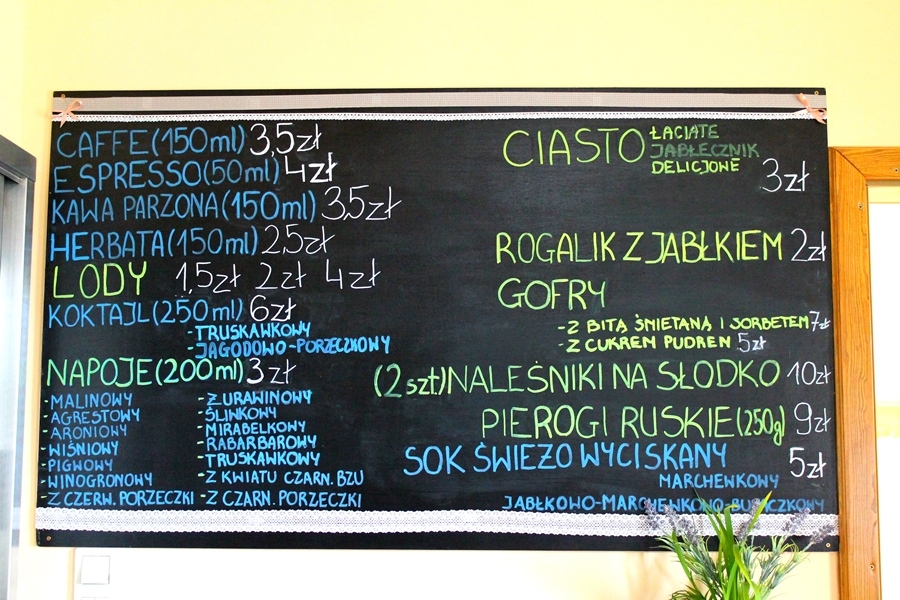 CAFFE(150ml) 3,5zł
ESPRESSO(50ml) 4zł
KAWA PARZONA(150ml) 3,5zł
HERBATA(150ml) 2,5zł
LODY 1,5zł 2zł 4zł
KOKTAJL(250ml) 6zł
-TRUSKAWKOWY
-JAGODOWO-PORZECZKOWY
NAPOJE(200ml) 3zł
-MALINOWY
-AGRESTOWY
-ARONIOWY
-WIŚNIOWY
-PIGWOWY
-WINOGRONOWY
-Z CZERW. PORZECZKI
-ŻURAWINOWY
-ŚLIWKOWY
-MIRABELKOWY
-RABARBAROWY
-TRUSKAWKOWY
-Z KWIATU CZARN. BZU
-Z CZARN. PORZECZKI
CIASTO ŁACIATE
JABŁECZNIK
DELICJOWE
3zł
ROGALIK Z JABŁKIEM 2zł
GOFRY
-Z BITĄ ŚMIETANĄ I SORBETEM 7zł
-Z CUKREM PUDREM 5zł
(2szt.) NALEŚNIKI NA SŁODKO 10zł
PIEROGI RUSKIE(250g) 9zł
SOK ŚWIEŻO WYCISKANY 5zł
MARCHEWKOWY
JABŁKOWO-MARCHEWKOWO-BURACZKOWY